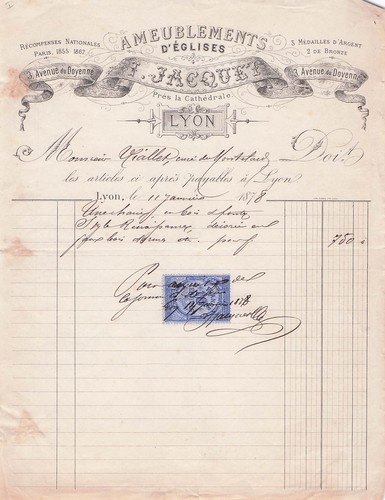 AMEUBLEMENTS
D'ÉGLISES
RÉCOMPENSES NATIONALES
PARIS, 1855 1867
3 MÉDAILLES D'ARGENT
2 DE BRONZE
3, Avenue du Doyenné
I. JACQUET
3, Avenue du Doyenné
Près la Cathédrale
LYON
Monsieur Viallet curé de Doit
les articles ci après payables à Lyon
Lyon, le 11 Janvier 1878
Une chaire en bois
Style Renaissance, décorée en
faux bois 750
Pour acquit
1878